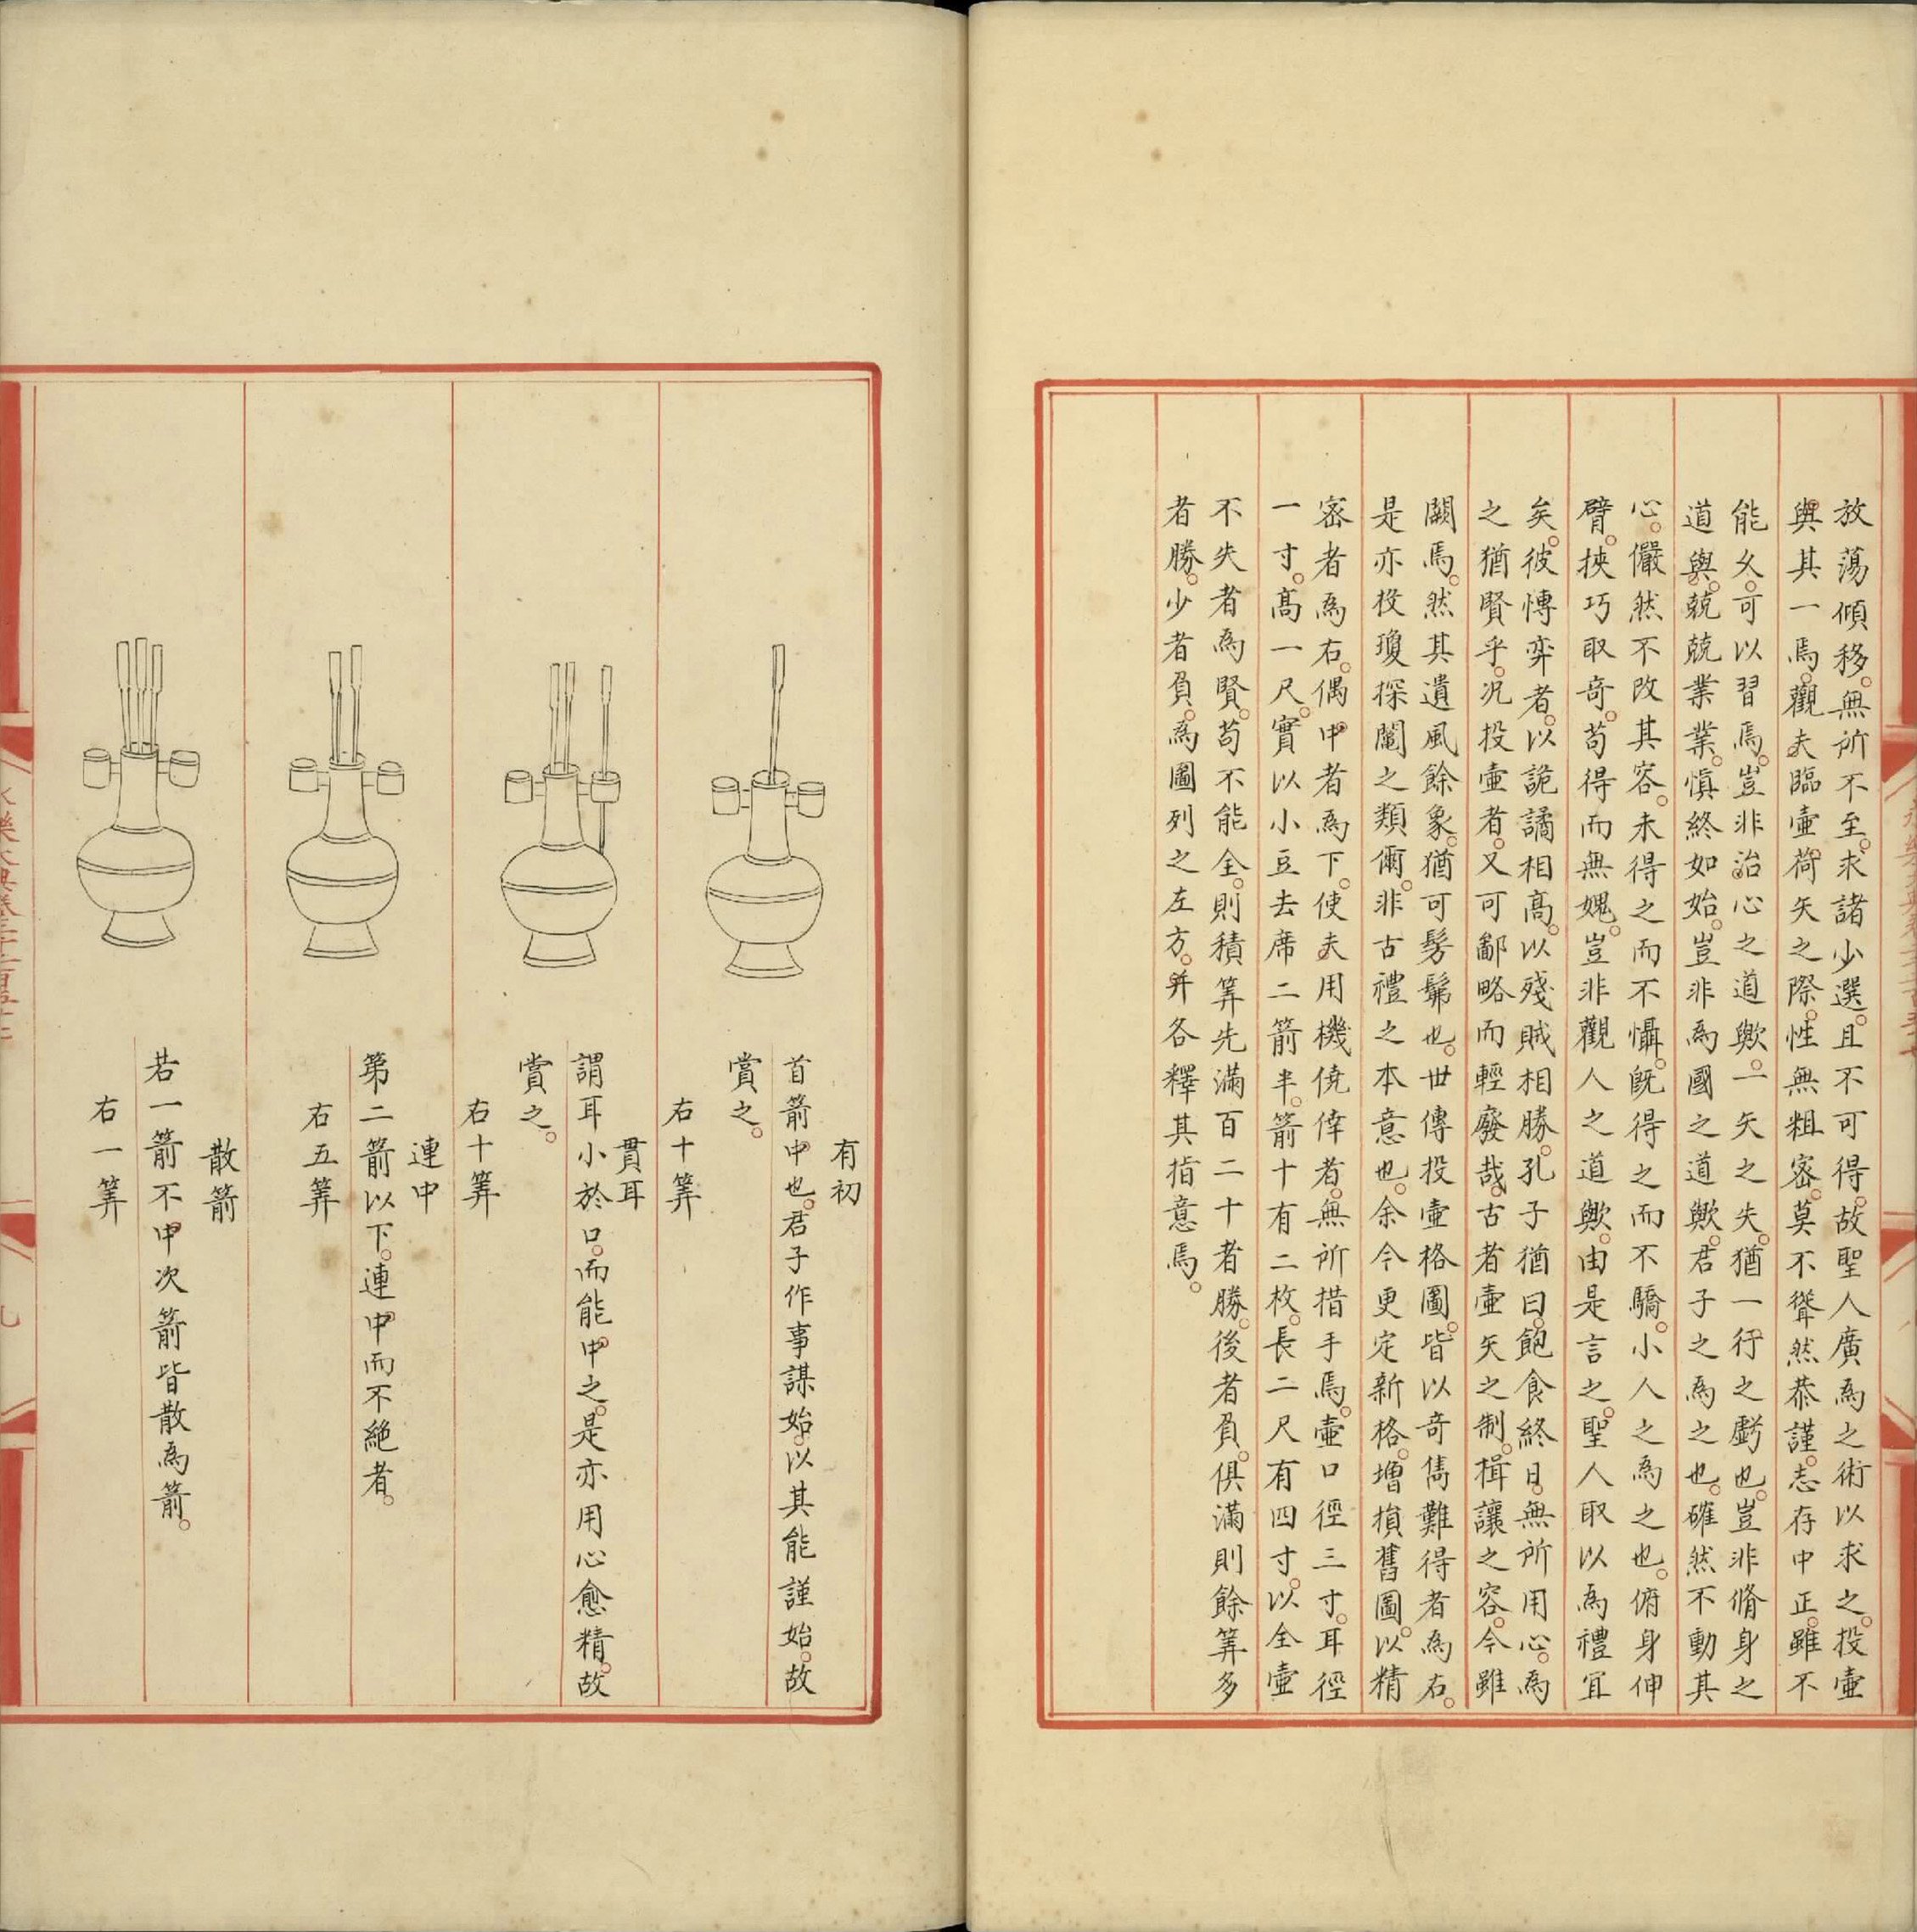 放蕩傾移。無所不至。求諸少選。且不可得。故聖人廣為之術以求之。投壺
與其一焉。觀夫臨壺荷矢之際。性無粗密。莫不聳然恭謹。志存中正。雖不
能久。可以習焉。豈非治心之道歟。一矢之失。猶一行之虧也。豈非脩身之
道與。兢兢業業。慎終如始。豈非為國之道歟。君子之為之也。確然不動其
心。儼然不改其容。未得之而不懾。既得之而不驕。小人之為之也。俯身伸
臂。挾巧取奇。苟得而無媿。豈非觀人之道歟。由是言之。聖人取以為禮宜
矣。彼愽弈者。以詭譎相高。以殘賊相勝。孔子猶曰。飽食終日。無所用心。為
之猶賢乎。況投壺者。又可鄙略而輕廢哉。古者壺矢之制。揖讓之容。今雖
闕焉。然其遺風餘象。猶可髣髴也。世傳投壺格圖。皆以奇雋難得者為右。
是亦投瓊探鬮之類爾。非古禮之本意也。余今更定新格。增損舊圖。以精
密者為右。偶中者為下。使夫用機僥倖者。無所措手焉。壺口徑三寸。耳徑
一寸。高一尺。實以小豆去席二箭半。箭十有二枚。長二尺有四寸。以全壺
不失者為賢。苟不能全。則積筭先滿百二十者勝。後者負。俱滿則餘筭多
者勝。少者負。為圖列之左方。并各釋其指意焉。
有初
首箭中也。君子作事謀始。以其能謹始。故
賞之。
右十筭
貫耳
謂耳小於口。而能中之。是亦用心愈精。故
賞之。
右十筭
連中
第二箭以下。連中而不絕者。
右五筭
散箭
若一箭不中次箭皆散為箭。
右一筭